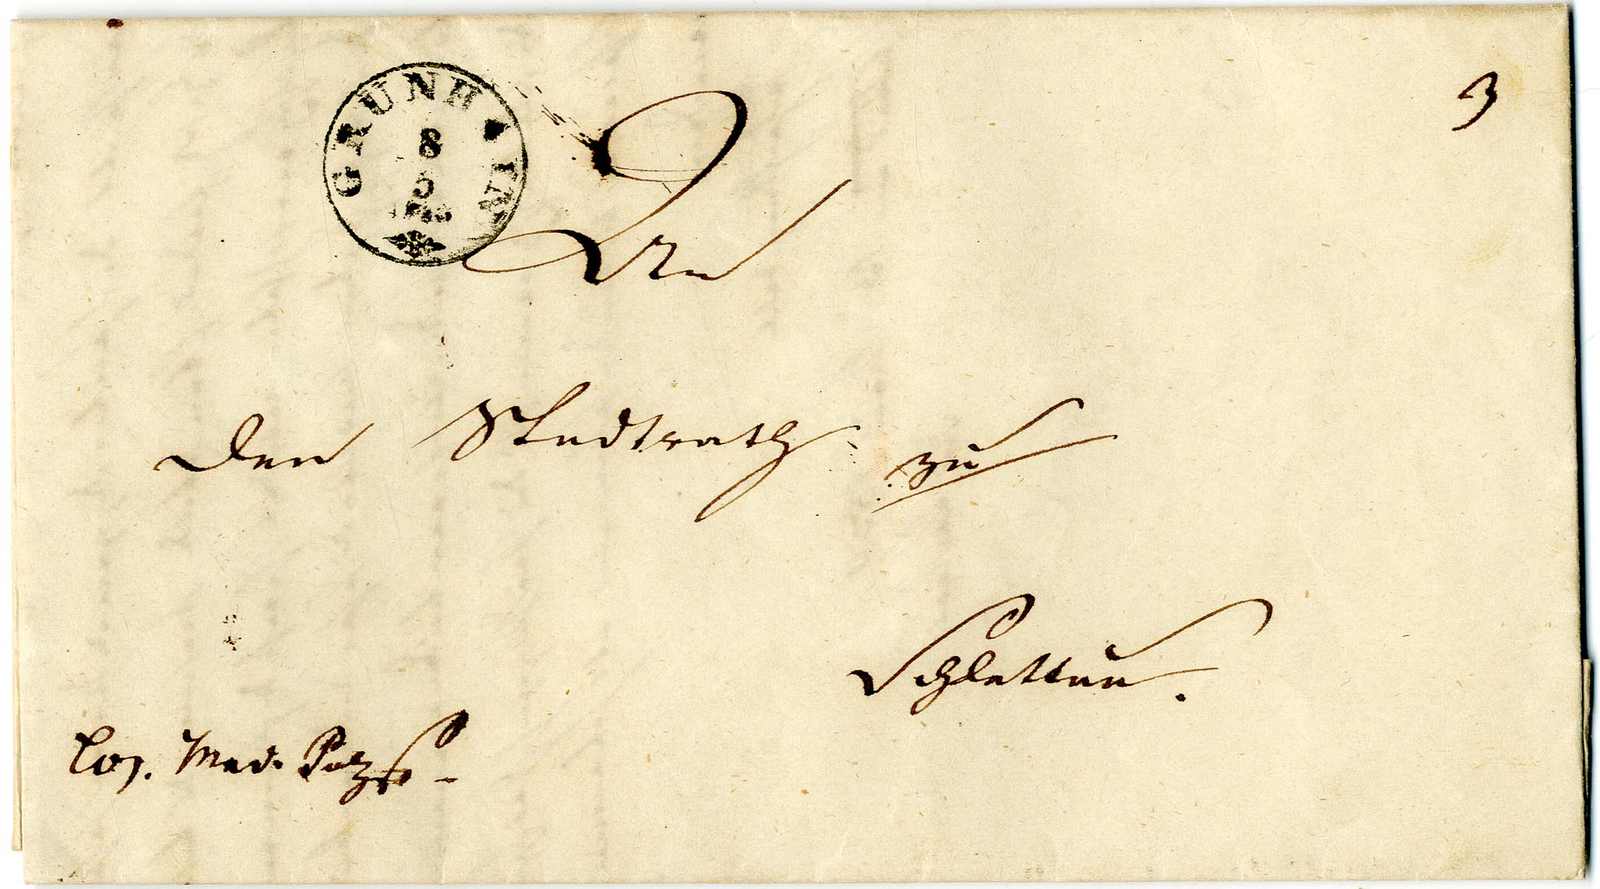 GRÜNHAIN
8
5
3
An
den Stadtrath zu
Schlettau.
Med. Polz. S.